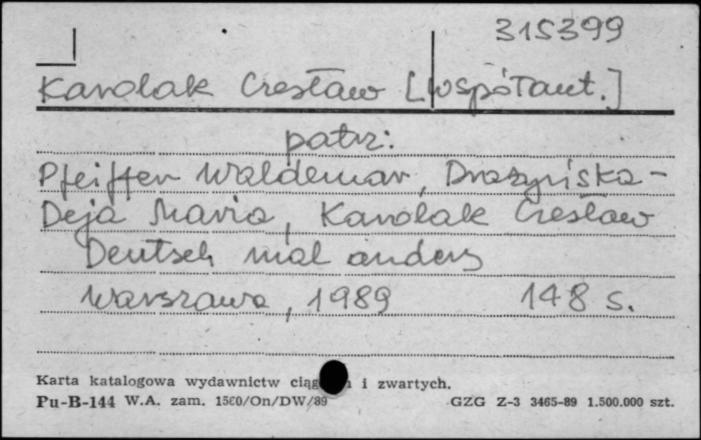 315399
Karolak Czesław [współaut.]
patrz:
Pfeiffer Waldemar, Drążyńska-
Deja Maria, Karolak Czesław
Deutsch mal anders
Warszawa, 1989 148 s.
Karta katalogowa wydawnictw ciąg i zwartych.
Pu-B-144 W.A. zam. 1560/On/DW/89 GZG Z-3 3465-89 1.500.000 szt.